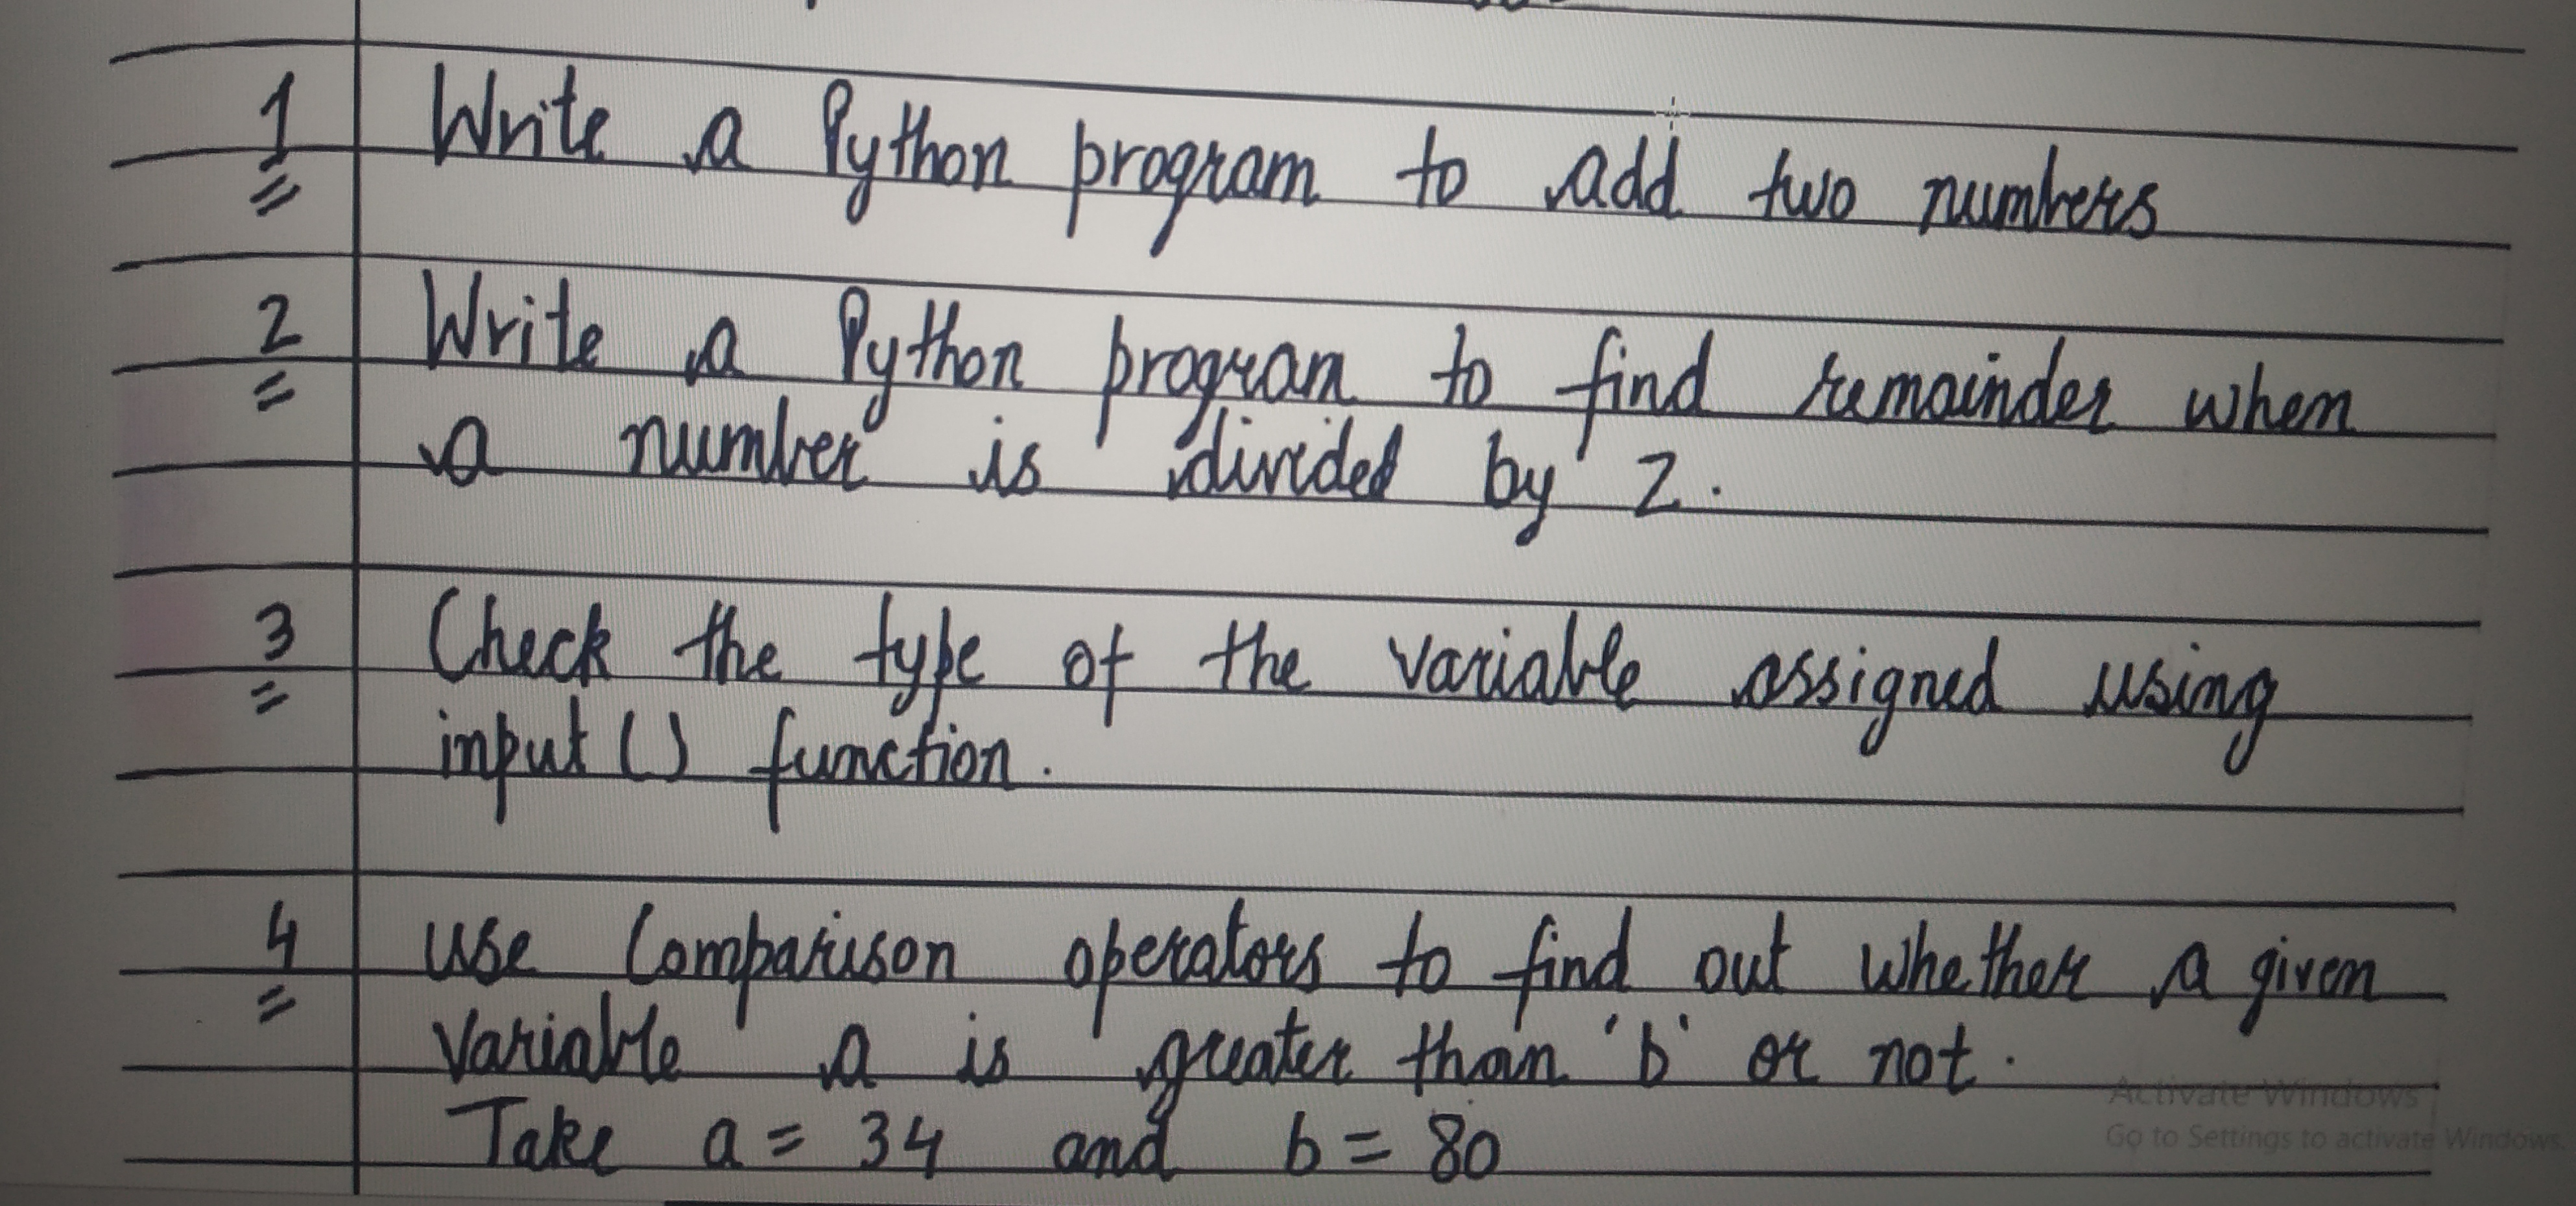 1 Write a Python program to add two numbers
2 Write a Python program to find remainder when
a number is divided by 2.
3 Check the type of the variable assigned using
input () function.
4 use Comparison operators to find out whether a given
Variable a is greater than 'b' or not.
Take a = 34 and b = 80
Activate Windows
Go to Settings to activate Windows.